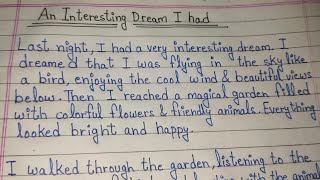 An Interesting Dream I had
Last night, I had a very interesting dream. I
dreamed that I was flying in the sky like
a bird, enjoying the cool wind & beautiful views
below. Then I reached a magical garden filled
with colorful flowers & friendly animals. Everything
looked bright and happy.
I walked through the garden, listening to the
with the animal